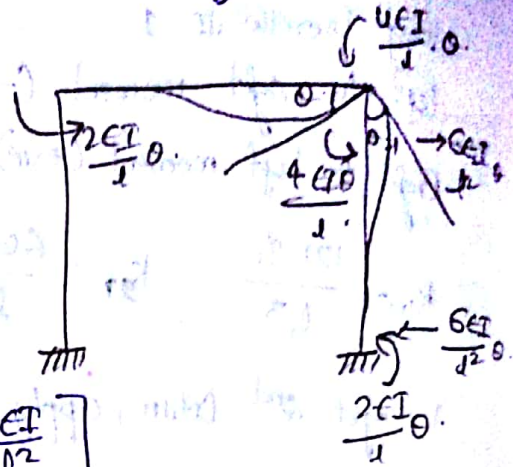 4EI/l . θ
θ
2EI/l θ.
θ
4EIθ/l .
6EI/l² θ
6EI/l² θ
2EI/l θ.
EI/l²